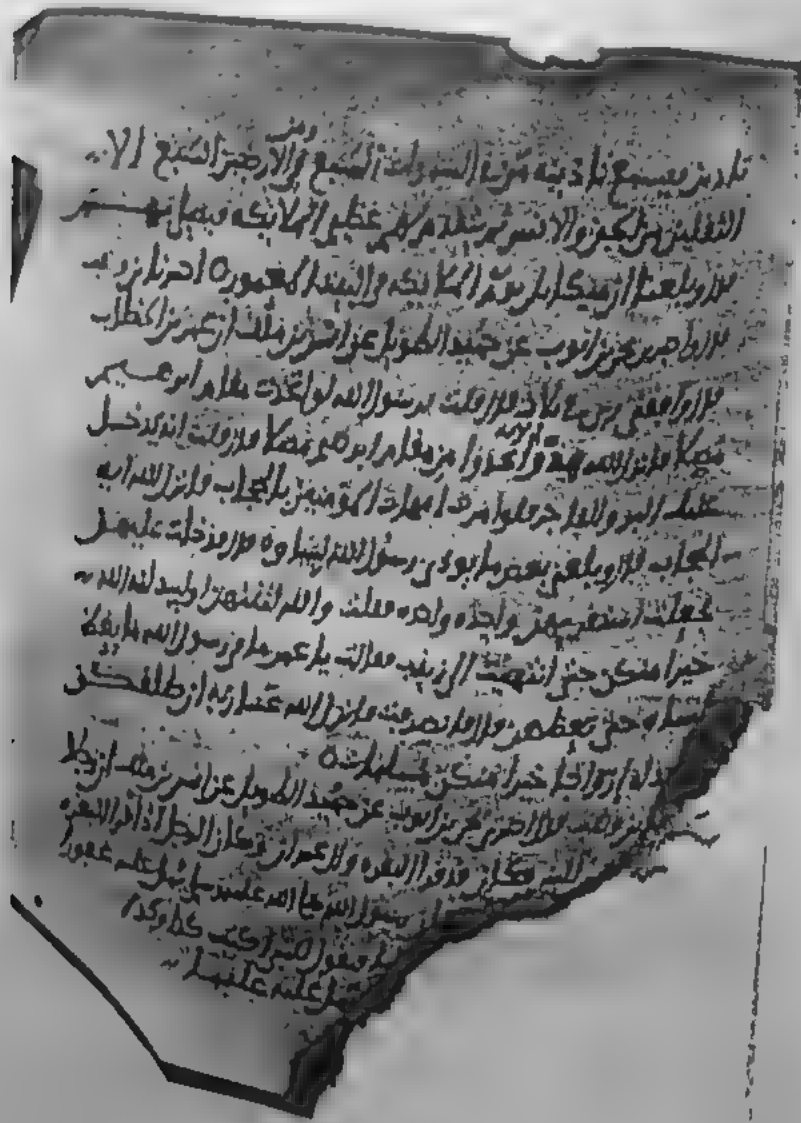 تاذين يسمع تاذينه من في السموات السبع ومن في الارضين السبع الا
الثقلين من الجن والانس ثم يتقدم بهم عظيم الملائكه فيصلي بهم
قال وبلغنا ان ميكايل يؤم الملائكه في البيت المعمور ه اخبرنا ابن وهب
قال واخبرني يحيى بن ايوب عن حميد الطويل عن انس بن ملك ان عمر بن الخطاب
قال وافقني ربي في ثلاث قال قلت يرسول الله لو اتخذت مقام ابرهيم
مصلا فانزل الله هذه الايه واتخذوا من مقام ابرهيم مصلا قال قلت انه يدخل
عليك البر والفاجر فلو امرت امهات المؤمنين بالحجاب فانزل الله ايه
الحجاب قال وبلغني بعض ما يوذي رسول الله نساوه قال فدخلت عليهن
فجعلت استقريهن واحده واحده فقلت والله لتنتهن او ليبدلنه الله
خيرا منكن حتى انتهيت الى زينب فقالت يا عمر ما في رسول الله ما يعظ
نساه حتى تعظهن قال فانصرفت فانزل الله عسا ربه ان طلقكن
يبدله ازواجا خيرا منكن مسلمات ه
ابن وهب قال اخبرني يحيى بن ايوب عن حميد الطويل عن انس بن ملك ان رجلا
للنبي وكان قد قرا البقره وال عمران وكان الرجل اذا قرا البقره
رسول الله صلى الله عليه يملي عليه غفورا
فيقول اكتب كذا وكذا
يملي عليه عليما